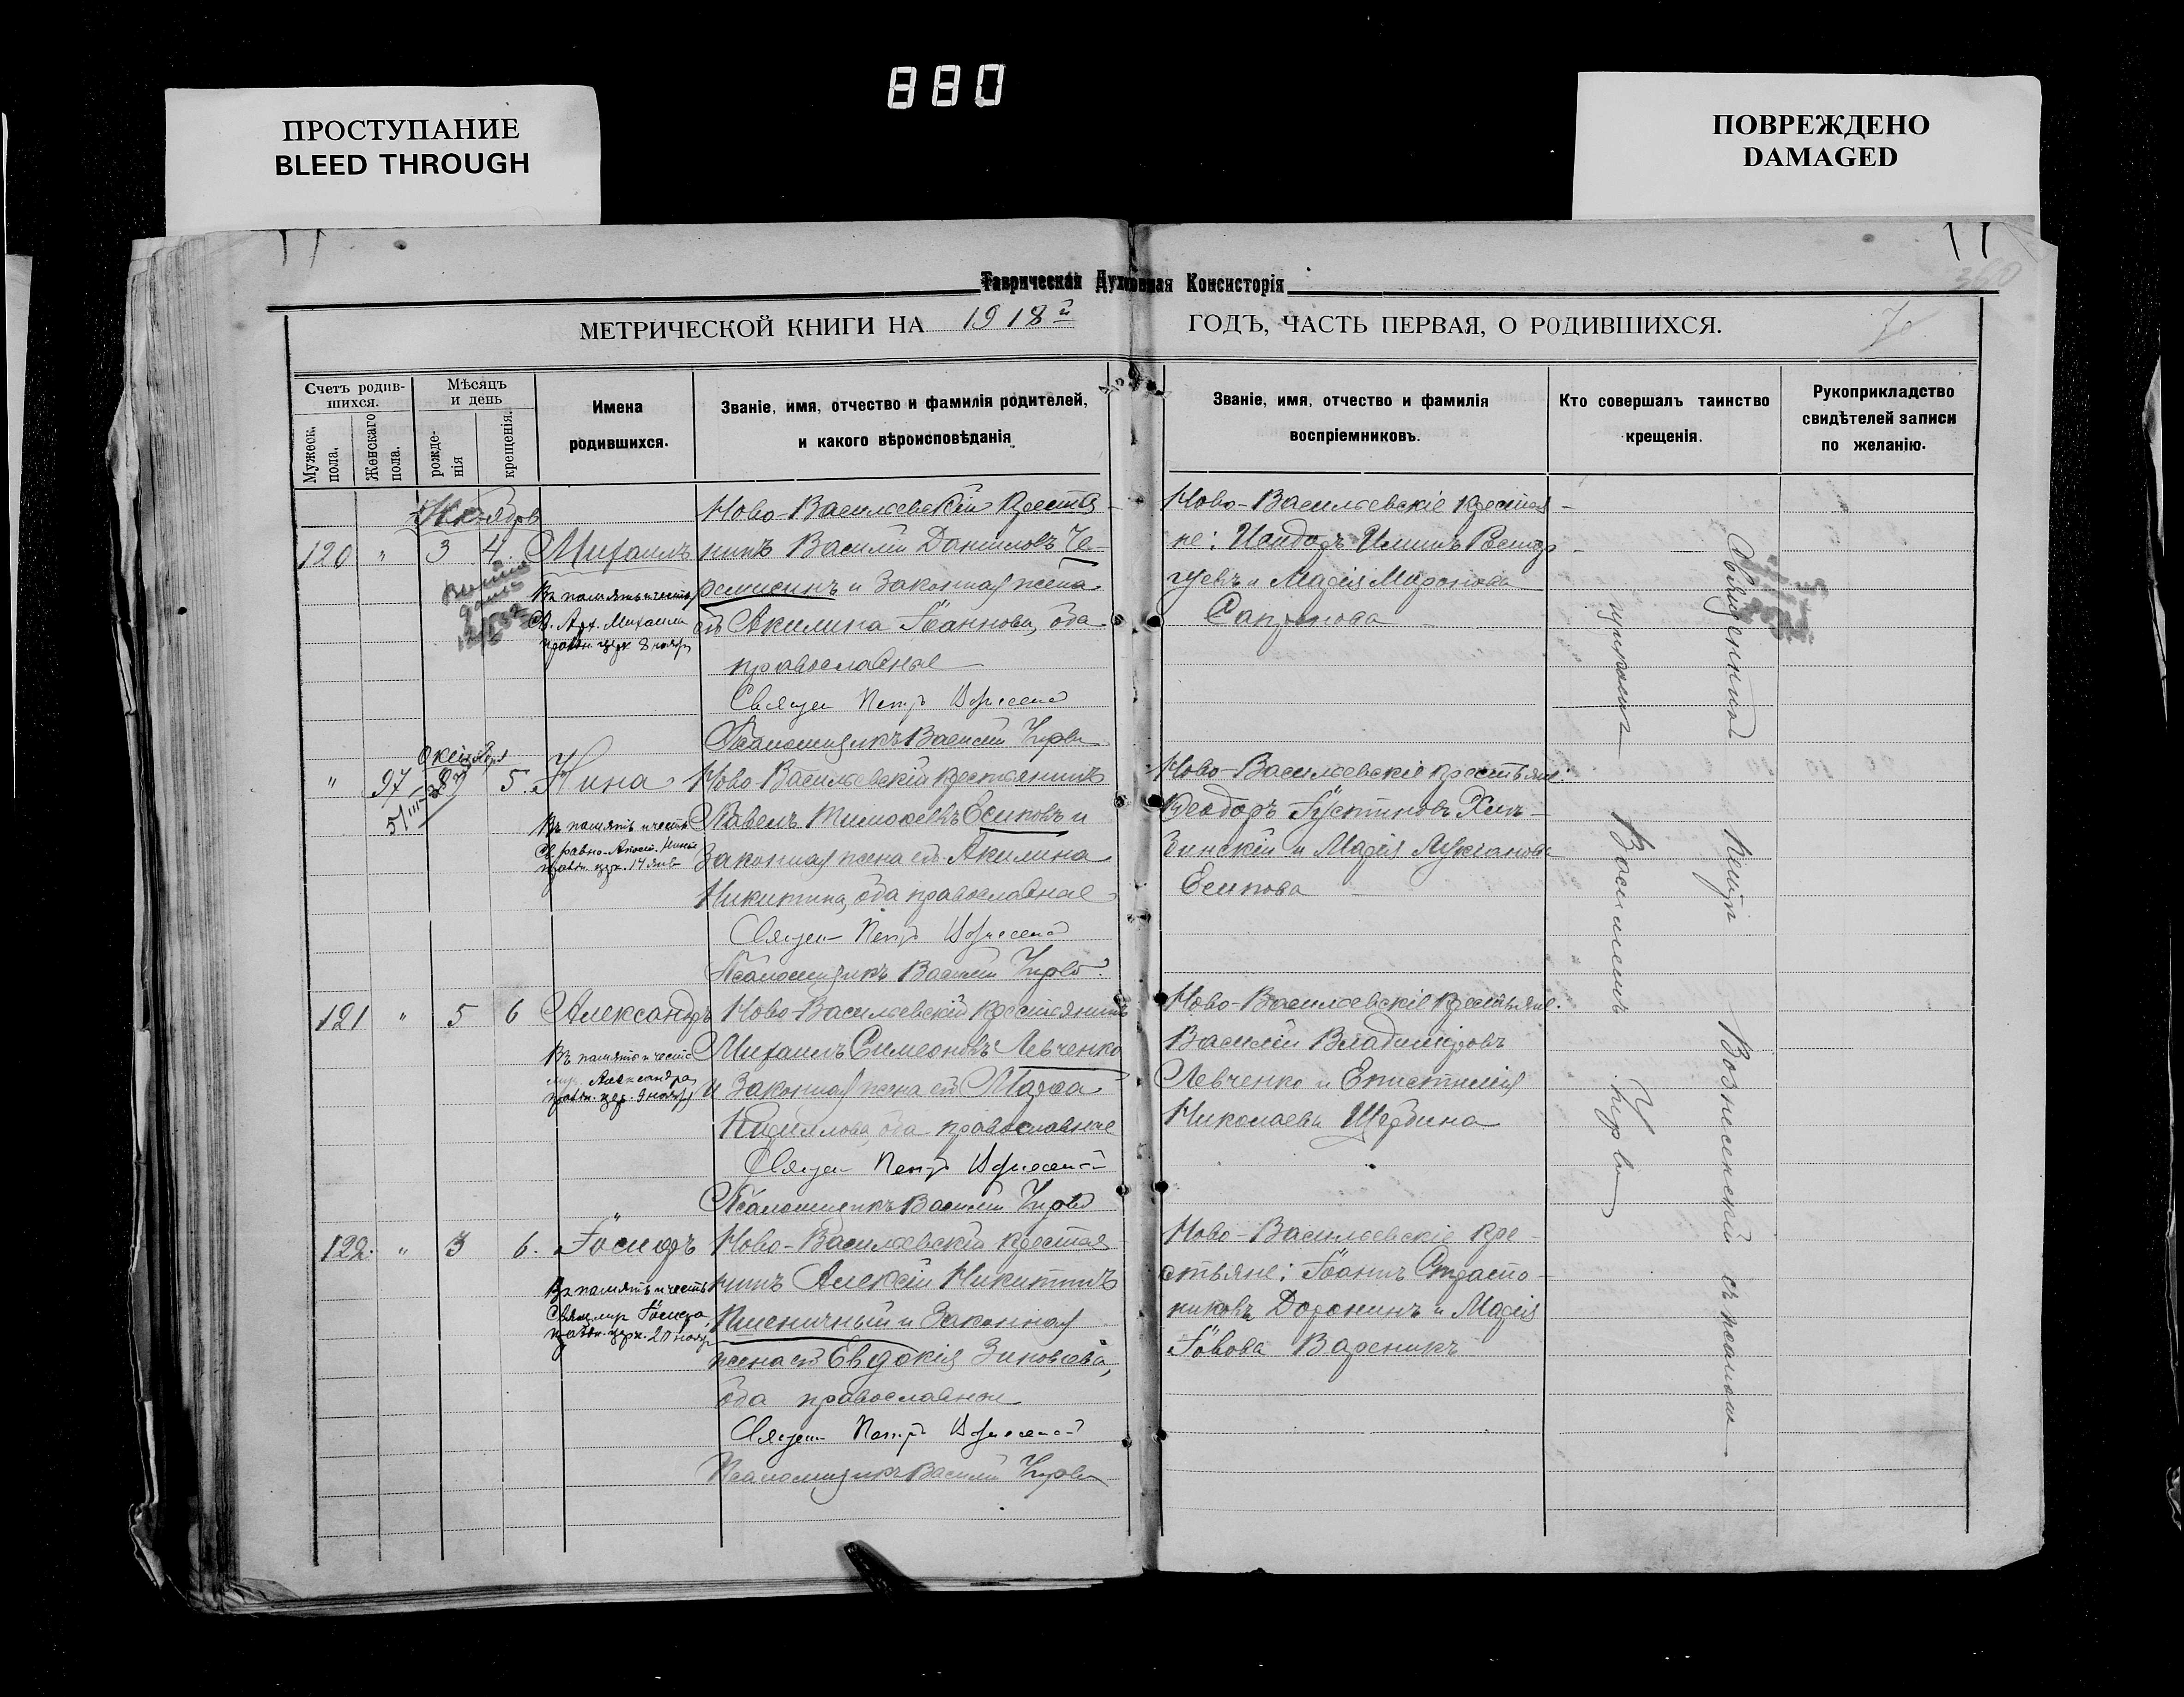 880
ПРОСТУПАНИЕ
BLEED THROUGH
ПОВРЕЖДЕНО
DAMAGED
Таврическая Духовная Консисторія
МЕТРИЧЕСКОЙ КНИГИ НА 1918й ГОДЪ, ЧАСТЬ ПЕРВАЯ, О РОДИВШИХСЯ.
Счетъ родив-
шихся.
Мужеск. пола.
Женскаго пола.
Мѣсяцъ
и день
рожде-
нія
крещенія.
Имена
родившихся.
Званіе, имя, отчество и фамилія родителей,
и какого вѣроисповѣданія
Званіе, имя, отчество и фамилія
воспріемниковъ.
Кто совершалъ таинство
крещенія.
Рукоприкладство
свидѣтелей записи
по желанію.
120 " 3 4. Михаилъ
Въ память и честь
Св. Арх. Михаила
праздн. церк. 8 ноябр
Ново-Васильевскій крестья-
нинъ Василій Даниловъ Че-
ремисинъ и законная жена
его Акилина Іоаннова, оба
православные
Священ Петръ Вознесенск
Псаломщикъ Василій
Ново-Васильевскіе крестья-
не: Исидоръ Илiинъ Растор-
гуевъ и Марія Миронова
Сапронова
Октября
" 97 5. Нина
Въ память и честь
Св. равно-Апост. Нины
праздн. церк. 14 янв
Ново-Васильевскій крестьянинъ
Павелъ Тимоѳеевъ Есиповъ и
законная жена его Акилина
Никитина, оба православные
Священ Петръ Вознесенск
Псаломщикъ Василій
Ново-Васильевскіе крестьяне:
Ѳеодоръ Іустиновъ
и Марія Лукіанова
Есипова
121 " 5 6 Александръ
Въ память и честь
муч. Александра
праздн. цер. 9 ноября
Ново-Васильевскій крестьянинъ
Михаилъ Симеоновъ Левченко
и законная жена его Марѳа
Кириллова, оба православные
Священ Петръ Вознесенск
Псаломщикъ Василій
Ново-Васильевскіе крестьяне:
Василій Владиміровъ
Левченко и Епистимія
Николаева Щербина
122. " 3 6. Іосифъ
Въ память и честь
Свящ. муч. Іосифа,
праздн. церк. 20 ноябр
Ново-Васильевскій крестья-
нинъ Алексій Никитинъ
Пшеничный и законная
жена его Евдокія Зиновіева,
оба православные
Священ Петръ Вознесенск
Псаломщикъ Василій
Ново-Васильевскіе кре-
стьяне: Іоаннъ Страто-
никовъ Доронинъ и Марія
Іовова Вареникъ
Священникъ Петръ Вознесенскій съ псалом-
щикомъ Василіемъ